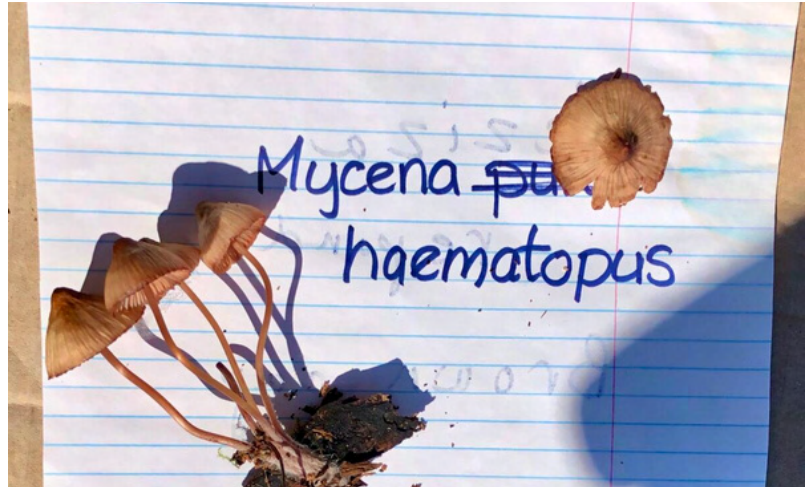 Mycena
haematopus